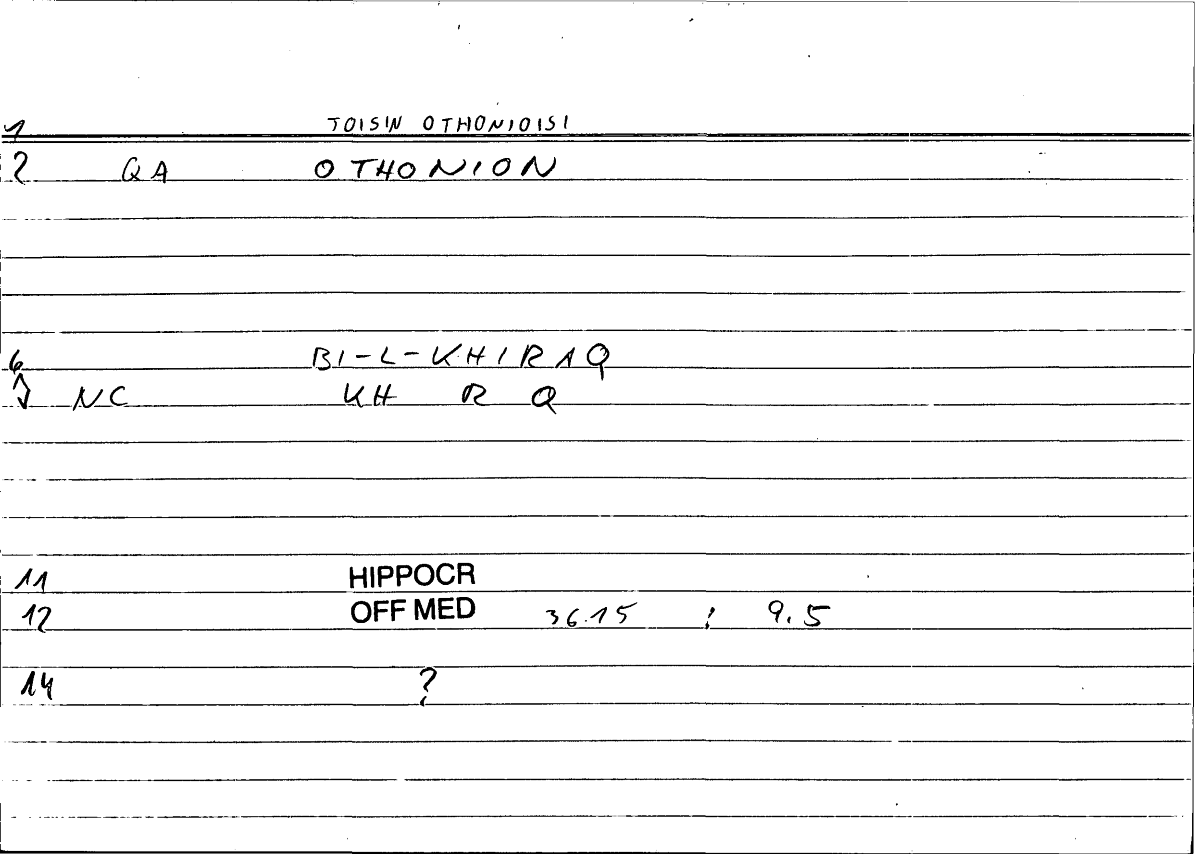 1 TOISIN OTHONIOISI
2 QA OTHONION
6 BI-L-KHIRAQ
7 NC KH R Q
11 HIPPOCR
12 OFF MED 36.15 : 9.5
14 ?